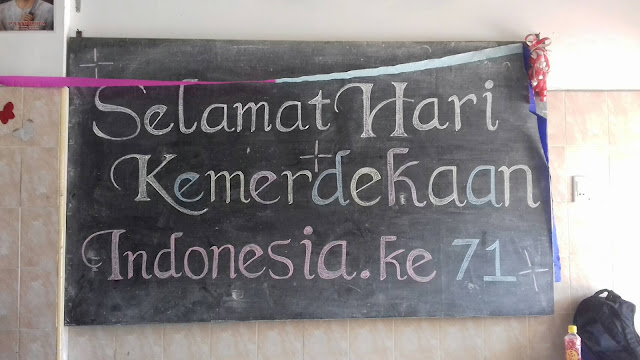 Selamat Hari
Kemerdekaan
Indonesia.ke 71